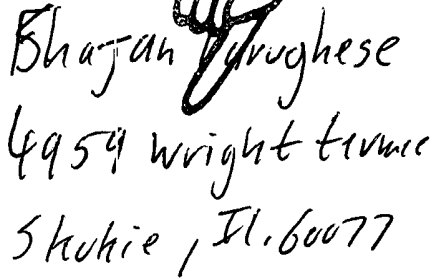 Bhajan Varughese
4959 Wright terrace
Skokie, Il. 60077